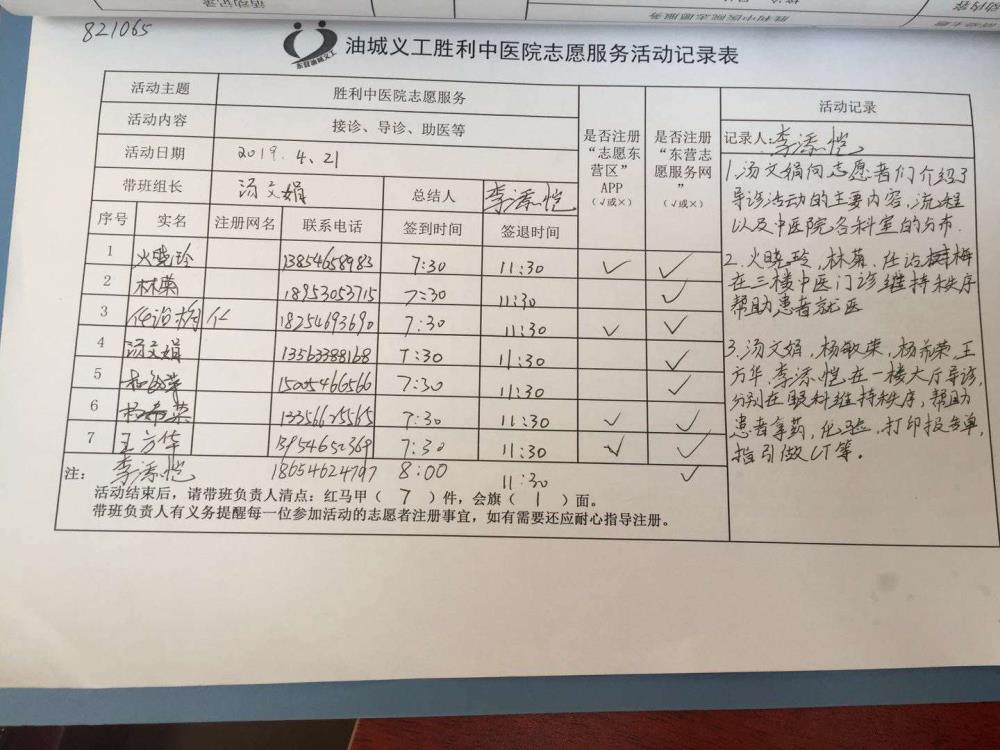 821065
东营油城义工
油城义工胜利中医院志愿服务活动记录表
活动主题 胜利中医院志愿服务
活动内容 接诊、导诊、助医等
活动日期 2019.4.21
带班组长 汤文娟 总结人 李添恺
是否注册“志愿东营区”APP（√或×）
是否注册“东营志愿服务网”（√或×）
序号 实名 注册网名 联系电话 签到时间 签退时间
1 火晓玲 13854658983 7:30 11:30 √ √
2 林菊 18953053715 7:30 11:30 √
3 任治梅 18254693690 7:30 11:30 √ √
4 汤文娟 13563388168 7:30 11:30 √
5 杨敏荣 15005466566 7:30 11:30 √
6 杨希荣 13356625565 7:30 11:30 √ √
7 王方华 13954652369 7:30 11:30 √ √
李添恺 18654624797 8:00 11:30 √
注：
活动结束后，请带班负责人清点：红马甲（ 7 ）件，会旗（ 1 ）面。
带班负责人有义务提醒每一位参加活动的志愿者注册事宜，如有需要还应耐心指导注册。
活动记录
记录人：李添恺
1.汤文娟向志愿者们介绍了
导诊活动的主要内容，流程
以及中医院各科室的分布.
2.火晓玲，林菊，任治梅
在三楼中医门诊维持秩序
帮助患者就医
3.汤文娟，杨敏荣，杨希荣，王
方华，李添恺在一楼大厅导诊，
分别在眼科维持秩序，帮助
患者拿药，化验，打印报告单，
指引做CT等。